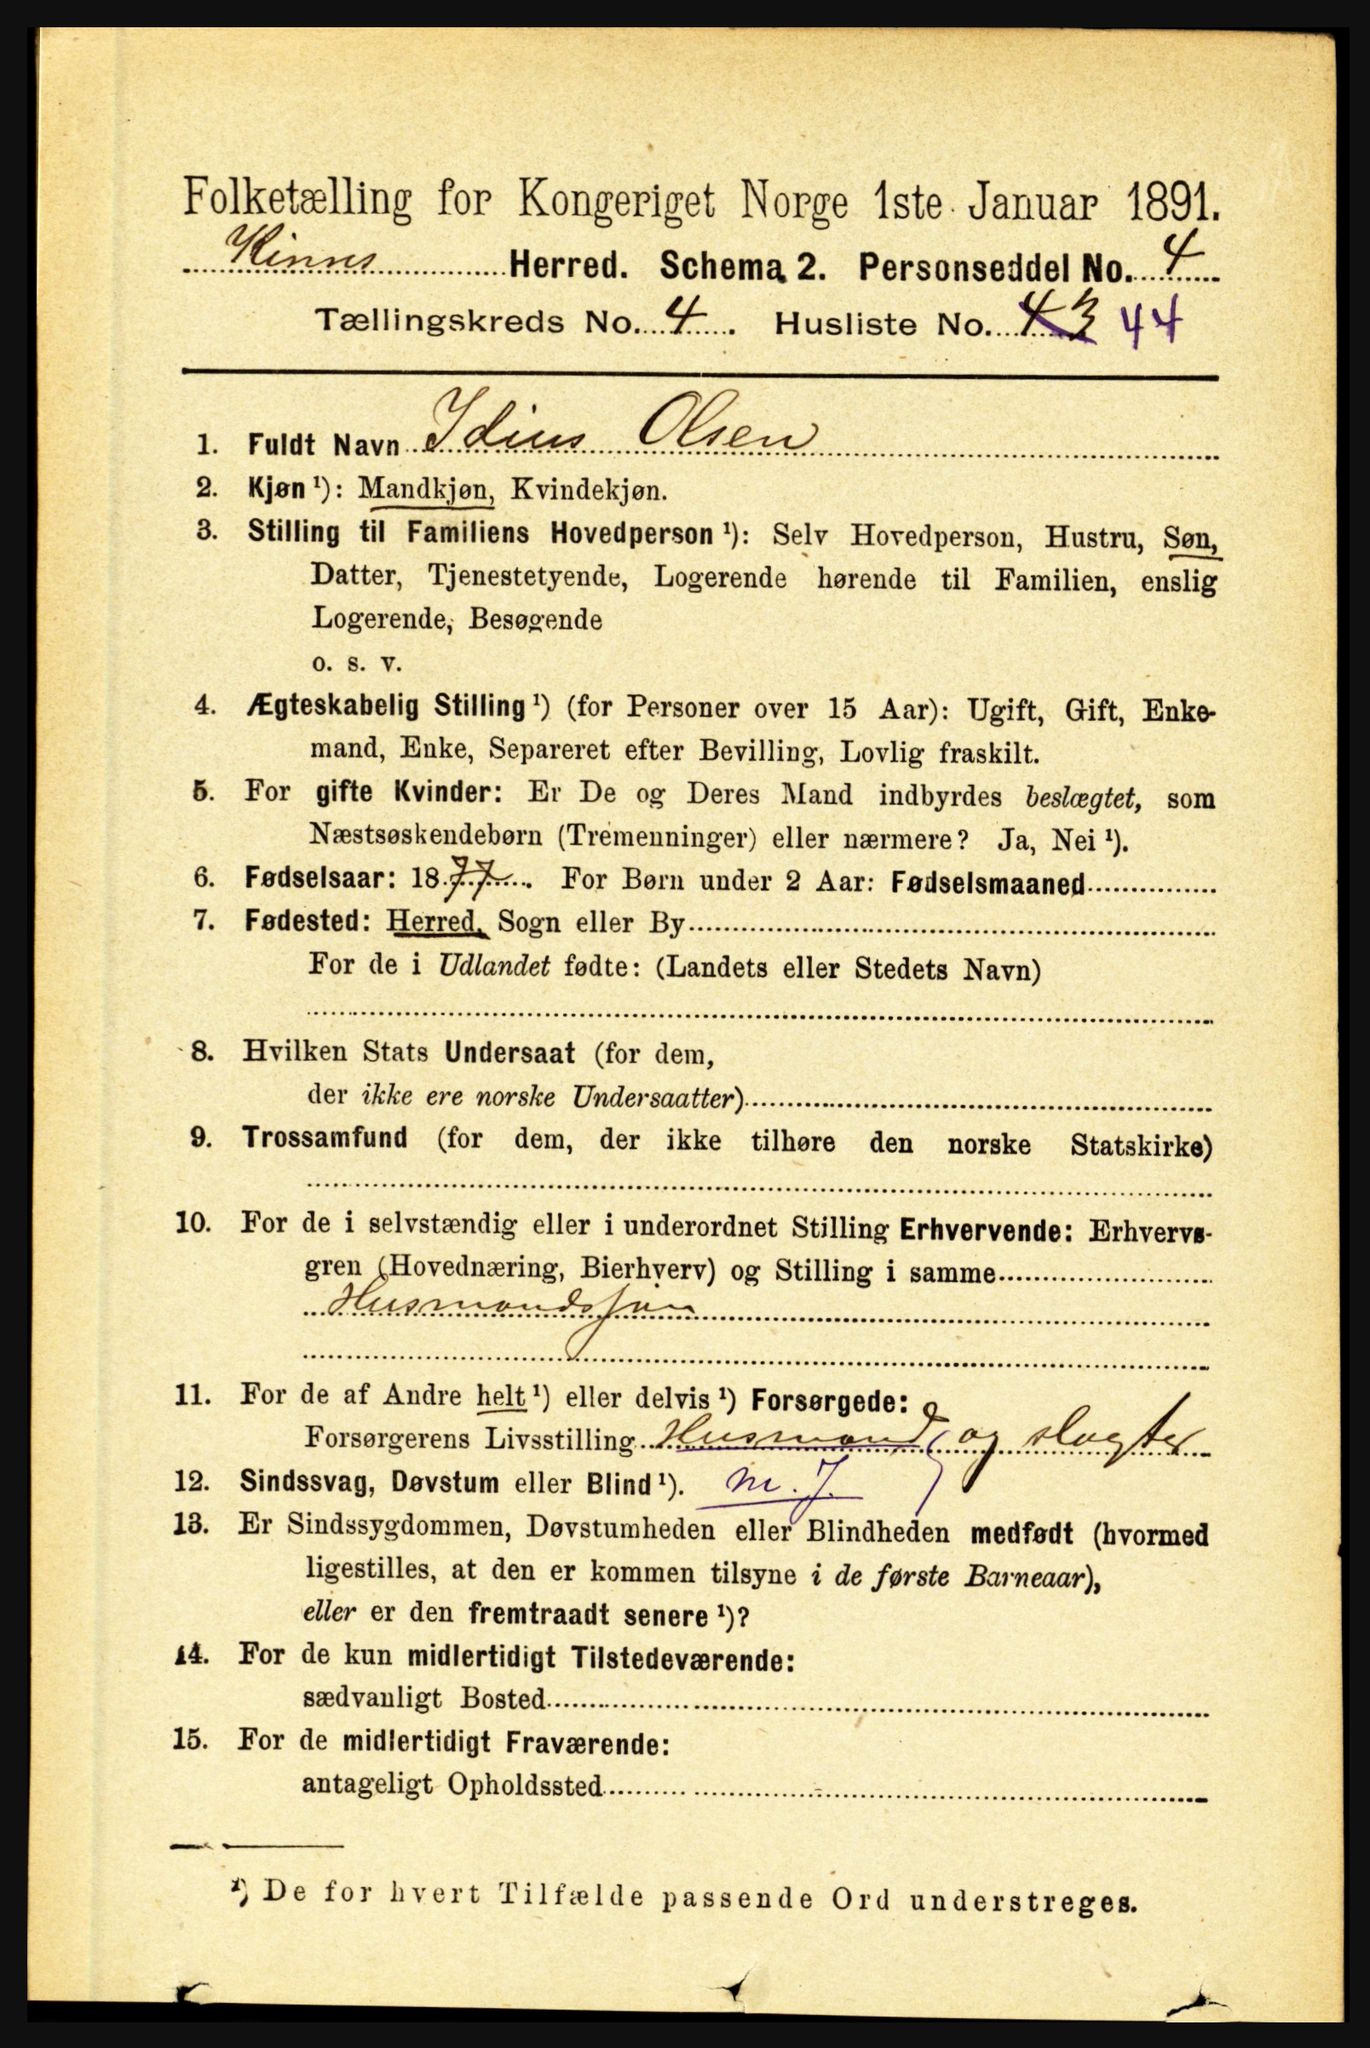 Folketælling for Kongeriget Norge 1ste Januar 1891.
Kinns Herred. Schema 2. Personseddel No. 4
Tællingskreds No. 4. Husliste No. 43 44
1. Fuldt Navn Idius Olsen
2. Kjøn ¹): Mandkjøn, Kvindekjøn.
3. Stilling til Familiens Hovedperson ¹): Selv Hovedperson, Hustru, Søn,
Datter, Tjenestetyende, Logerende hørende til Familien, enslig
Logerende, Besøgende
o. s. v.
4. Ægteskabelig Stilling ¹) (for Personer over 15 Aar): Ugift, Gift, Enke-
mand, Enke, Separeret efter Bevilling, Lovlig fraskilt.
5. For gifte Kvinder: Er De og Deres Mand indbyrdes beslægtet, som
Næstsøskendebørn (Tremenninger) eller nærmere? Ja, Nei ¹).
6. Fødselsaar: 1877. For Børn under 2 Aar: Fødselsmaaned
7. Fødested: Herred, Sogn eller By
For de i Udlandet fødte: (Landets eller Stedets Navn)
8. Hvilken Stats Undersaat (for dem,
der ikke ere norske Undersaatter)
9. Trossamfund (for dem, der ikke tilhøre den norske Statskirke)
10. For de i selvstændig eller i underordnet Stilling Erhvervende: Erhvervs-
gren (Hovednæring, Bierhverv) og Stilling i samme
Husmandssøn
11. For de af Andre helt ¹) eller delvis ¹) Forsørgede:
Forsørgerens Livsstilling Husmand og slagter
12. Sindssvag, Døvstum eller Blind ¹). m. J.
13. Er Sindssygdommen, Døvstumheden eller Blindheden medfødt (hvormed
ligestilles, at den er kommen tilsyne i de første Barneaar),
eller er den fremtraadt senere ¹)?
14. For de kun midlertidigt Tilstedeværende:
sædvanligt Bosted
15. For de midlertidigt Fraværende:
antageligt Opholdssted
¹) De for hvert Tilfælde passende Ord understreges.